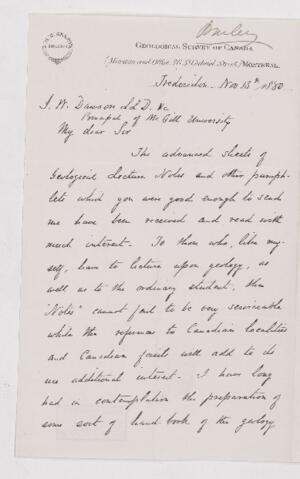 Bailey
GEOLOGICAL SURVEY OF CANADA
(Museum and Office, 76 St. Gabriel Street,) MONTREAL.
Fredericton. Nov 15th 1880
J. W. Dawson LL.D. &c
Principal of McGill University
My dear Sir
The advanced sheets of
Geological Lecture Notes and other pamph-
lets which you were good enough to send
me have been received and read with
much interest. To those who, like my-
self, have to lecture upon geology, as
well as to the ordinary student, the
"Notes" cannot fail to be very serviceable
while the references to Canadian localities
and Canadian fossils will add to its
use additional interest. I have long
had in contemplation the preparation of
some sort of hand-book of the geology